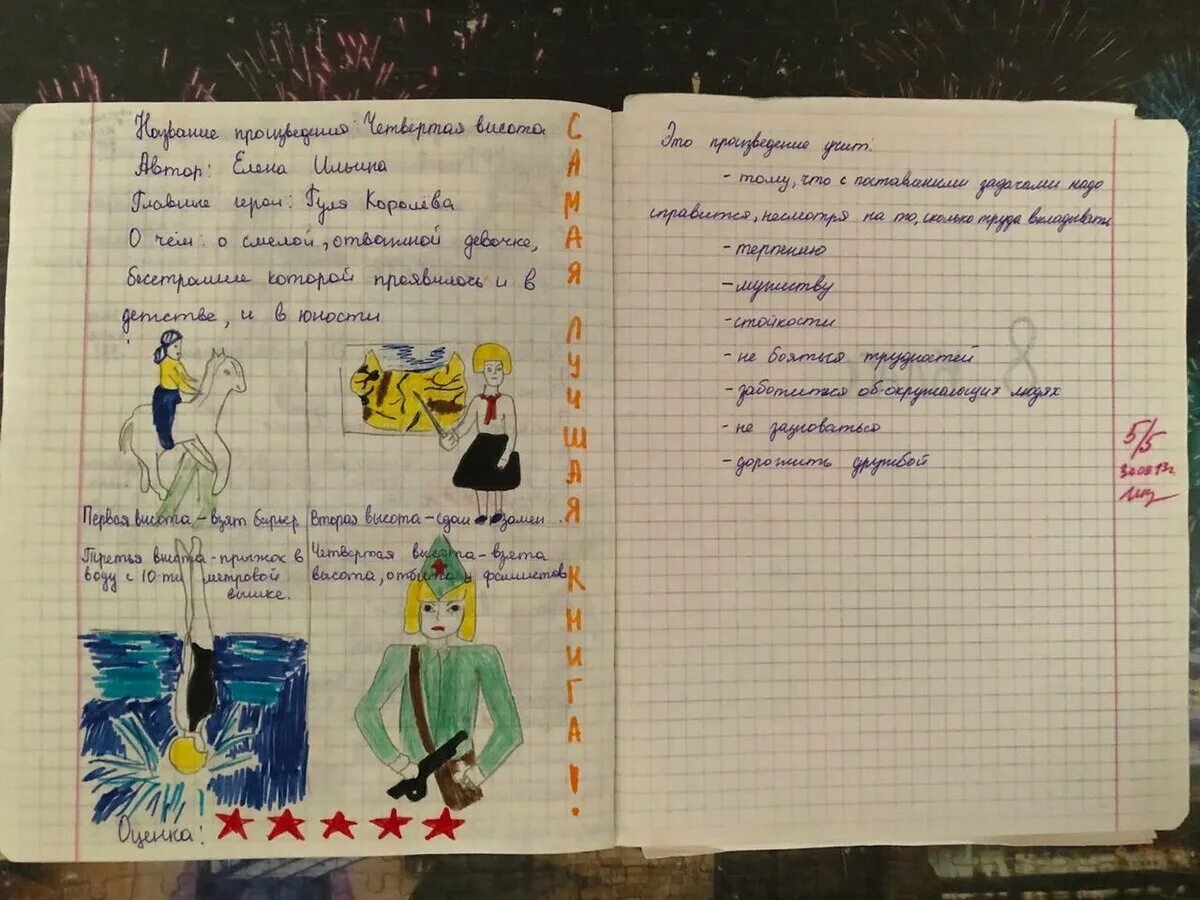 Название произведения: Четвёртая высота
Автор: Елена Ильина
Главные герои: Гуля Королёва
О чём: о смелой, отважной девочке,
бесстрашие которой проявилось и в
детстве, и в юности
Первая высота - взят барьер
Вторая высота - сдан экзамен
Третья высота - прыжок в
воду с 10-ти метровой
вышке.
Четвёртая высота - взята
высота, отбита у фашистов
Оценка:
САМАЯ ЛУЧШАЯ КНИГА!
Это произведение учит:
- тому, что с поставленими задачами надо
справится, несмотря на то, сколько труда вкладывать
- терпению
- мужеству
- стойкости
- не бояться трудностей
- заботиться об окружающих людях
- не зазноваться
- дорожить дружбой
5/5